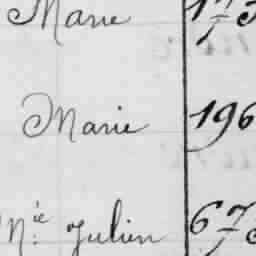 Marie 175
Marie 196
M.ie Julien 673